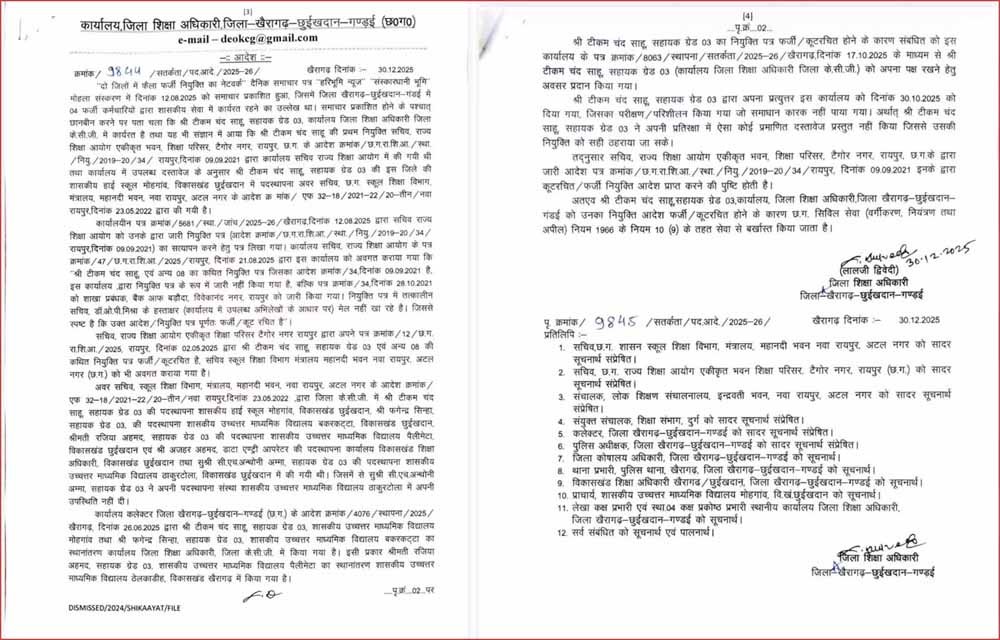 [3]
कार्यालय,जिला शिक्षा अधिकारी,जिला–खैरागढ़–छुईखदान–गण्डई (छ०ग०)
e-mail – deokcg@gmail.com
–:: आदेश ::–
क्रमांक / 9844 /सतर्कता/पद.आदे./2025–26/ खैरागढ़ दिनांक :– 30.12.2025
"दो जिलों में फैला फर्जी नियुक्ति का नेटवर्क" दैनिक समाचार पत्र "हरिभूमि न्यूज" "संस्कारधानी भूमि"
मोहला संस्करण में दिनांक 12.08.2025 को समाचार प्रकाशित हुआ, जिसमें जिला खैरागढ़–छुईखदान–गंडई में
04 फर्जी कर्मचारियों द्वारा शासकीय सेवा में कार्यरत रहने का उल्लेख था। समाचार प्रकाशित होने के पश्चात्
छानबीन करने पर पता चला कि श्री टीकम चंद साहू, सहायक ग्रेड 03, कार्यालय जिला शिक्षा अधिकारी जिला
के.सी.जी. में कार्यरत है तथा यह भी संज्ञान में आया कि श्री टीकम चंद साहू की प्रथम नियुक्ति सचिव, राज्य
शिक्षा आयोग एकीकृत भवन, शिक्षा परिसर, टैगोर नगर, रायपुर, छ.ग. के आदेश क्रमांक/छ.ग.रा.शि.आ./स्था.
/नियु./2019–20/34/ रायपुर,दिनांक 09.09.2021 द्वारा कार्यालय सचिव राज्य शिक्षा आयोग में की गयी थी
तथा कार्यालय में उपलब्ध दस्तावेज के अनुसार श्री टीकम चंद साहू, सहायक ग्रेड 03 की इस जिले की
शासकीय हाई स्कूल मोहगांव, विकासखंड छुईखदान में पदस्थापना अवर सचिव, छ.ग. स्कूल शिक्षा विभाग,
मंत्रालय, महानदी भवन, नवा रायपुर, अटल नगर के आदेश क्र मांक/ एफ 32–18/2021–22/20–तीन/नवा
रायपुर,दिनांक 23.05.2022 द्वारा की गयी है।
कार्यालयीन पत्र क्रमांक/5681/स्था./जांच/2025–26/खैरागढ़,दिनांक 12.08.2025 द्वारा सचिव राज्य
शिक्षा आयोग को उनके द्वारा जारी नियुक्ति पत्र (आदेश क्रमांक/छ.ग.रा.शि.आ./स्था./नियु./2019–20/34/
रायपुर,दिनांक 09.09.2021) का सत्यापन करने हेतु पत्र लिखा गया। कार्यालय सचिव, राज्य शिक्षा आयोग के पत्र
क्रमांक/47/छ.ग.रा.शि.आ./2025/रायपुर, दिनांक 21.08.2025 द्वारा इस कार्यालय को अवगत कराया गया कि
"श्री टीकम चंद साहू, एवं अन्य 08 का कथित नियुक्ति पत्र जिसका आदेश क्रमांक/34,दिनांक 09.09.2021 है,
इस कार्यालय ,द्वारा नियुक्ति पत्र के रूप में जारी नहीं किया गया है, बल्कि पत्र क्रमांक/34,दिनांक 28.10.2021
को शाखा प्रबंधक, बैंक आफ बड़ौदा, विवेकानंद नगर, रायपुर को जारी किया गया। नियुक्ति पत्र में तत्कालीन
सचिव, डॉ.ओ.पी.मिश्रा के हस्ताक्षर (कार्यालय में उपलब्ध अभिलेखों के आधार पर) मेल नही खा रहे है। जिससे
स्पष्ट है कि उक्त आदेश/नियुक्ति पत्र पूर्णतः फर्जी/कूट रचित है"।
सचिव, राज्य शिक्षा आयोग एकीकृत शिक्षा परिसर टैगोर नगर रायपुर द्वारा अपने पत्र क्रमांक/12/छ.ग.
रा.शि.आ./2025, रायपुर, दिनांक 02.05.2025 द्वारा श्री टीकम चंद साहू, सहायक ग्रेड 03 एवं अन्य 08 की
कथित नियुक्ति पत्र फर्जी/कूटरचित है, सचिव स्कूल शिक्षा विभाग मंत्रालय महानदी भवन नवा रायपुर, अटल
नगर (छ.ग.) को भी अवगत कराया गया है।
अवर सचिव, स्कूल शिक्षा विभाग, मंत्रालय, महानदी भवन, नवा रायपुर, अटल नगर के आदेश क्रमांक/
एफ 32–18/2021–22/20–तीन/नवा रायपुर,दिनांक 23.05.2022 ,द्वारा जिला के.सी.जी. में श्री टीकम चंद
साहू, सहायक ग्रेड 03 की पदस्थापना शासकीय हाई स्कूल मोहगांव, विकासखंड छुईखदान, श्री फगेन्द्र सिन्हा,
सहायक ग्रेड 03, की पदस्थापना शासकीय उच्चत्तर माध्यमिक विद्यालय बकरकट्टा, विकासखंड छुईखदान,
श्रीमती रजिया अहमद, सहायक ग्रेड 03 की पदस्थापना शासकीय उच्चत्तर माध्यमिक विद्यालय पैलीमेटा,
विकासखंड छुईखदान एवं श्री अजहर अहमद, डाटा एण्ट्री आपरेटर की पदस्थापना कार्यालय विकासखंड शिक्षा
अधिकारी, विकासखंड छुईखदान तथा सुश्री सी.एच.अन्थोनी अम्मा, सहायक ग्रेड 03 की पदस्थापना शासकीय
उच्चत्तर माध्यमिक विद्यालय ठाकुरटोला, विकासखंड छुईखदान में की गयी थी। जिसमें से सुश्री सी.एच.अन्थोनी
अम्मा, सहायक ग्रेड 03 ने अपनी पदस्थापना संस्था शासकीय उच्चत्तर माध्यमिक विद्यालय ठाकुरटोला में अपनी
उपस्थिति नहीं दी।
कार्यालय कलेक्टर जिला खैरागढ़–छुईखदान–गण्डई (छ.ग.) के आदेश क्रमांक/4076/स्थापना/2025/
खैरागढ़, दिनांक 26.06.2025 द्वारा श्री टीकम चंद साहू, सहायक ग्रेड 03, शासकीय उच्चत्तर माध्यमिक विद्यालय
मोहगांव तथा श्री फगेन्द्र सिन्हा, सहायक ग्रेड 03, शासकीय उच्चत्तर माध्यमिक विद्यालय बकरकट्टा का
स्थानांतरण कार्यालय जिला शिक्षा अधिकारी, जिला के.सी.जी. में किया गया है। इसी प्रकार श्रीमती रजिया
अहमद, सहायक ग्रेड 03, शासकीय उच्चत्तर माध्यमिक विद्यालय पैलीमेटा का स्थानांतरण शासकीय उच्चत्तर
माध्यमिक विद्यालय ठेलकाडीह, विकासखंड खैरागढ़ में किया गया है।
....पृ.क्रं...02...पर
DISMISSED/2024/SHIKAAYAT/FILE
[4]
....पृ.क्रं...02....
श्री टीकम चंद साहू, सहायक ग्रेड 03 का नियुक्ति पत्र फर्जी/कूटरचित होने के कारण संबंधित को इस
कार्यालय के पत्र क्रमांक/8063/स्थापना/सतर्कता/2025–26/खैरागढ़,दिनांक 17.10.2025 के माध्यम से श्री
टीकम चंद साहू, सहायक ग्रेड 03 (कार्यालय जिला शिक्षा अधिकारी जिला के.सी.जी.) को अपना पक्ष रखने हेतु
अवसर प्रदान किया गया।
श्री टीकम चंद साहू, सहायक ग्रेड 03 द्वारा अपना प्रत्युत्तर इस कार्यालय को दिनांक 30.10.2025 को
दिया गया, जिसका परीक्षण/परिशीलन किया गया जो समाधान कारक नहीं पाया गया। अर्थात् श्री टीकम चंद
साहू, सहायक ग्रेड 03 ने अपनी प्रतिरक्षा में ऐसा कोई प्रमाणित दस्तावेज प्रस्तुत नहीं किया जिससे उसकी
नियुक्ति को सही ठहराया जा सके।
तद्नुसार सचिव, राज्य शिक्षा आयोग एकीकृत भवन, शिक्षा परिसर, टैगोर नगर, रायपुर, छ.ग.के द्वारा
जारी आदेश पत्र क्रमांक/छ.ग.रा.शि.आ./स्था./नियु /2019–20/34/रायपुर, दिनांक 09.09.2021 इनके द्वारा
कूटरचित/फर्जी नियुक्ति आदेश प्राप्त करने की पुष्टि होती है।
अतएव श्री टीकम चंद साहू,सहायक ग्रेड 03,कार्यालय, जिला शिक्षा अधिकारी,जिला–खैरागढ़–छुईखदान–
गंडई को उनका नियुक्ति आदेश फर्जी/कूटरचित होने के कारण छ.ग. सिविल सेवा (वर्गीकरण, नियंत्रण तथा
अपील) नियम 1966 के नियम 10 (9) के तहत सेवा से बर्खास्त किया जाता है।
30.12.2025
(लालजी द्विवेदी)
जिला शिक्षा अधिकारी
जिला–खैरागढ़–छुईखदान–गण्डई
पृ. क्रमांक/ 9845 /सतर्कता/पद.आदे./2025–26/ खैरागढ़ दिनांक :– 30.12.2025
प्रतिलिपि :–
1. सचिव,छ.ग. शासन स्कूल शिक्षा विभाग, मंत्रालय, महानदी भवन नवा रायपुर, अटल नगर को सादर
सूचनार्थ संप्रेषित।
2. सचिव, छ.ग. राज्य शिक्षा आयोग एकीकृत भवन शिक्षा परिसर, टैगोर नगर, रायपुर (छ.ग.) को सादर
सूचनार्थ संप्रेषित।
3. संचालक, लोक शिक्षण संचालनालय, इन्द्रवती भवन, नवा रायपुर, अटल नगर को सादर सूचनार्थ
संप्रेषित।
4. संयुक्त संचालक, शिक्षा संभाग, दुर्ग को सादर सूचनार्थ संप्रेषित।
5. कलेक्टर, जिला खैरागढ़–छुईखदान–गण्डई को सादर सूचनार्थ संप्रेषित।
6. पुलिस अधीक्षक, जिला खैरागढ़–छुईखदान–गण्डई को सादर सूचनार्थ संप्रेषित।
7. जिला कोषालय अधिकारी, जिला खैरागढ़–छुईखदान–गण्डई को सूचनार्थ।
8. थाना प्रभारी, पुलिस थाना, खैरागढ़, जिला खैरागढ़–छुईखदान–गण्डई को सूचनार्थ।
9. विकासखंड शिक्षा अधिकारी खैरागढ़/छुईखदान, जिला खैरागढ़–छुईखदान–गण्डई को सूचनार्थ।
10. प्राचार्य, शासकीय उच्चत्तर माध्यमिक विद्यालय मोहगांव, वि.खं.छुईखदान को सूचनार्थ।
11. लेखा कक्ष प्रभारी एवं स्था.04 कक्ष प्रकोष्ठ प्रभारी स्थानीय कार्यालय जिला शिक्षा अधिकारी,
जिला खैरागढ़–छुईखदान–गण्डई को सूचनार्थ।
12. सर्व संबधित को सूचनार्थ एवं पालनार्थ।
जिला शिक्षा अधिकारी
जिला–खैरागढ़–छुईखदान–गण्डई